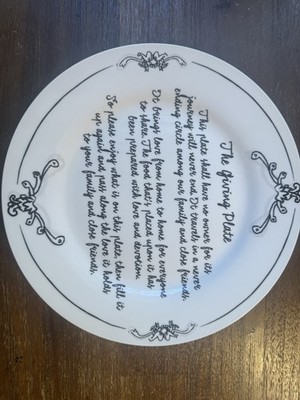 The Giving Plate
This plate shall have no owner for its
journey will never end It travels in a never
ending circle among our family and close friends.
It brings love from home to home for everyone
to share The food that's placed upon it has
been prepared with love and devotion.
So please enjoy what is on this plate then fill it
up again and pass along the love it holds
to your family and close friends.